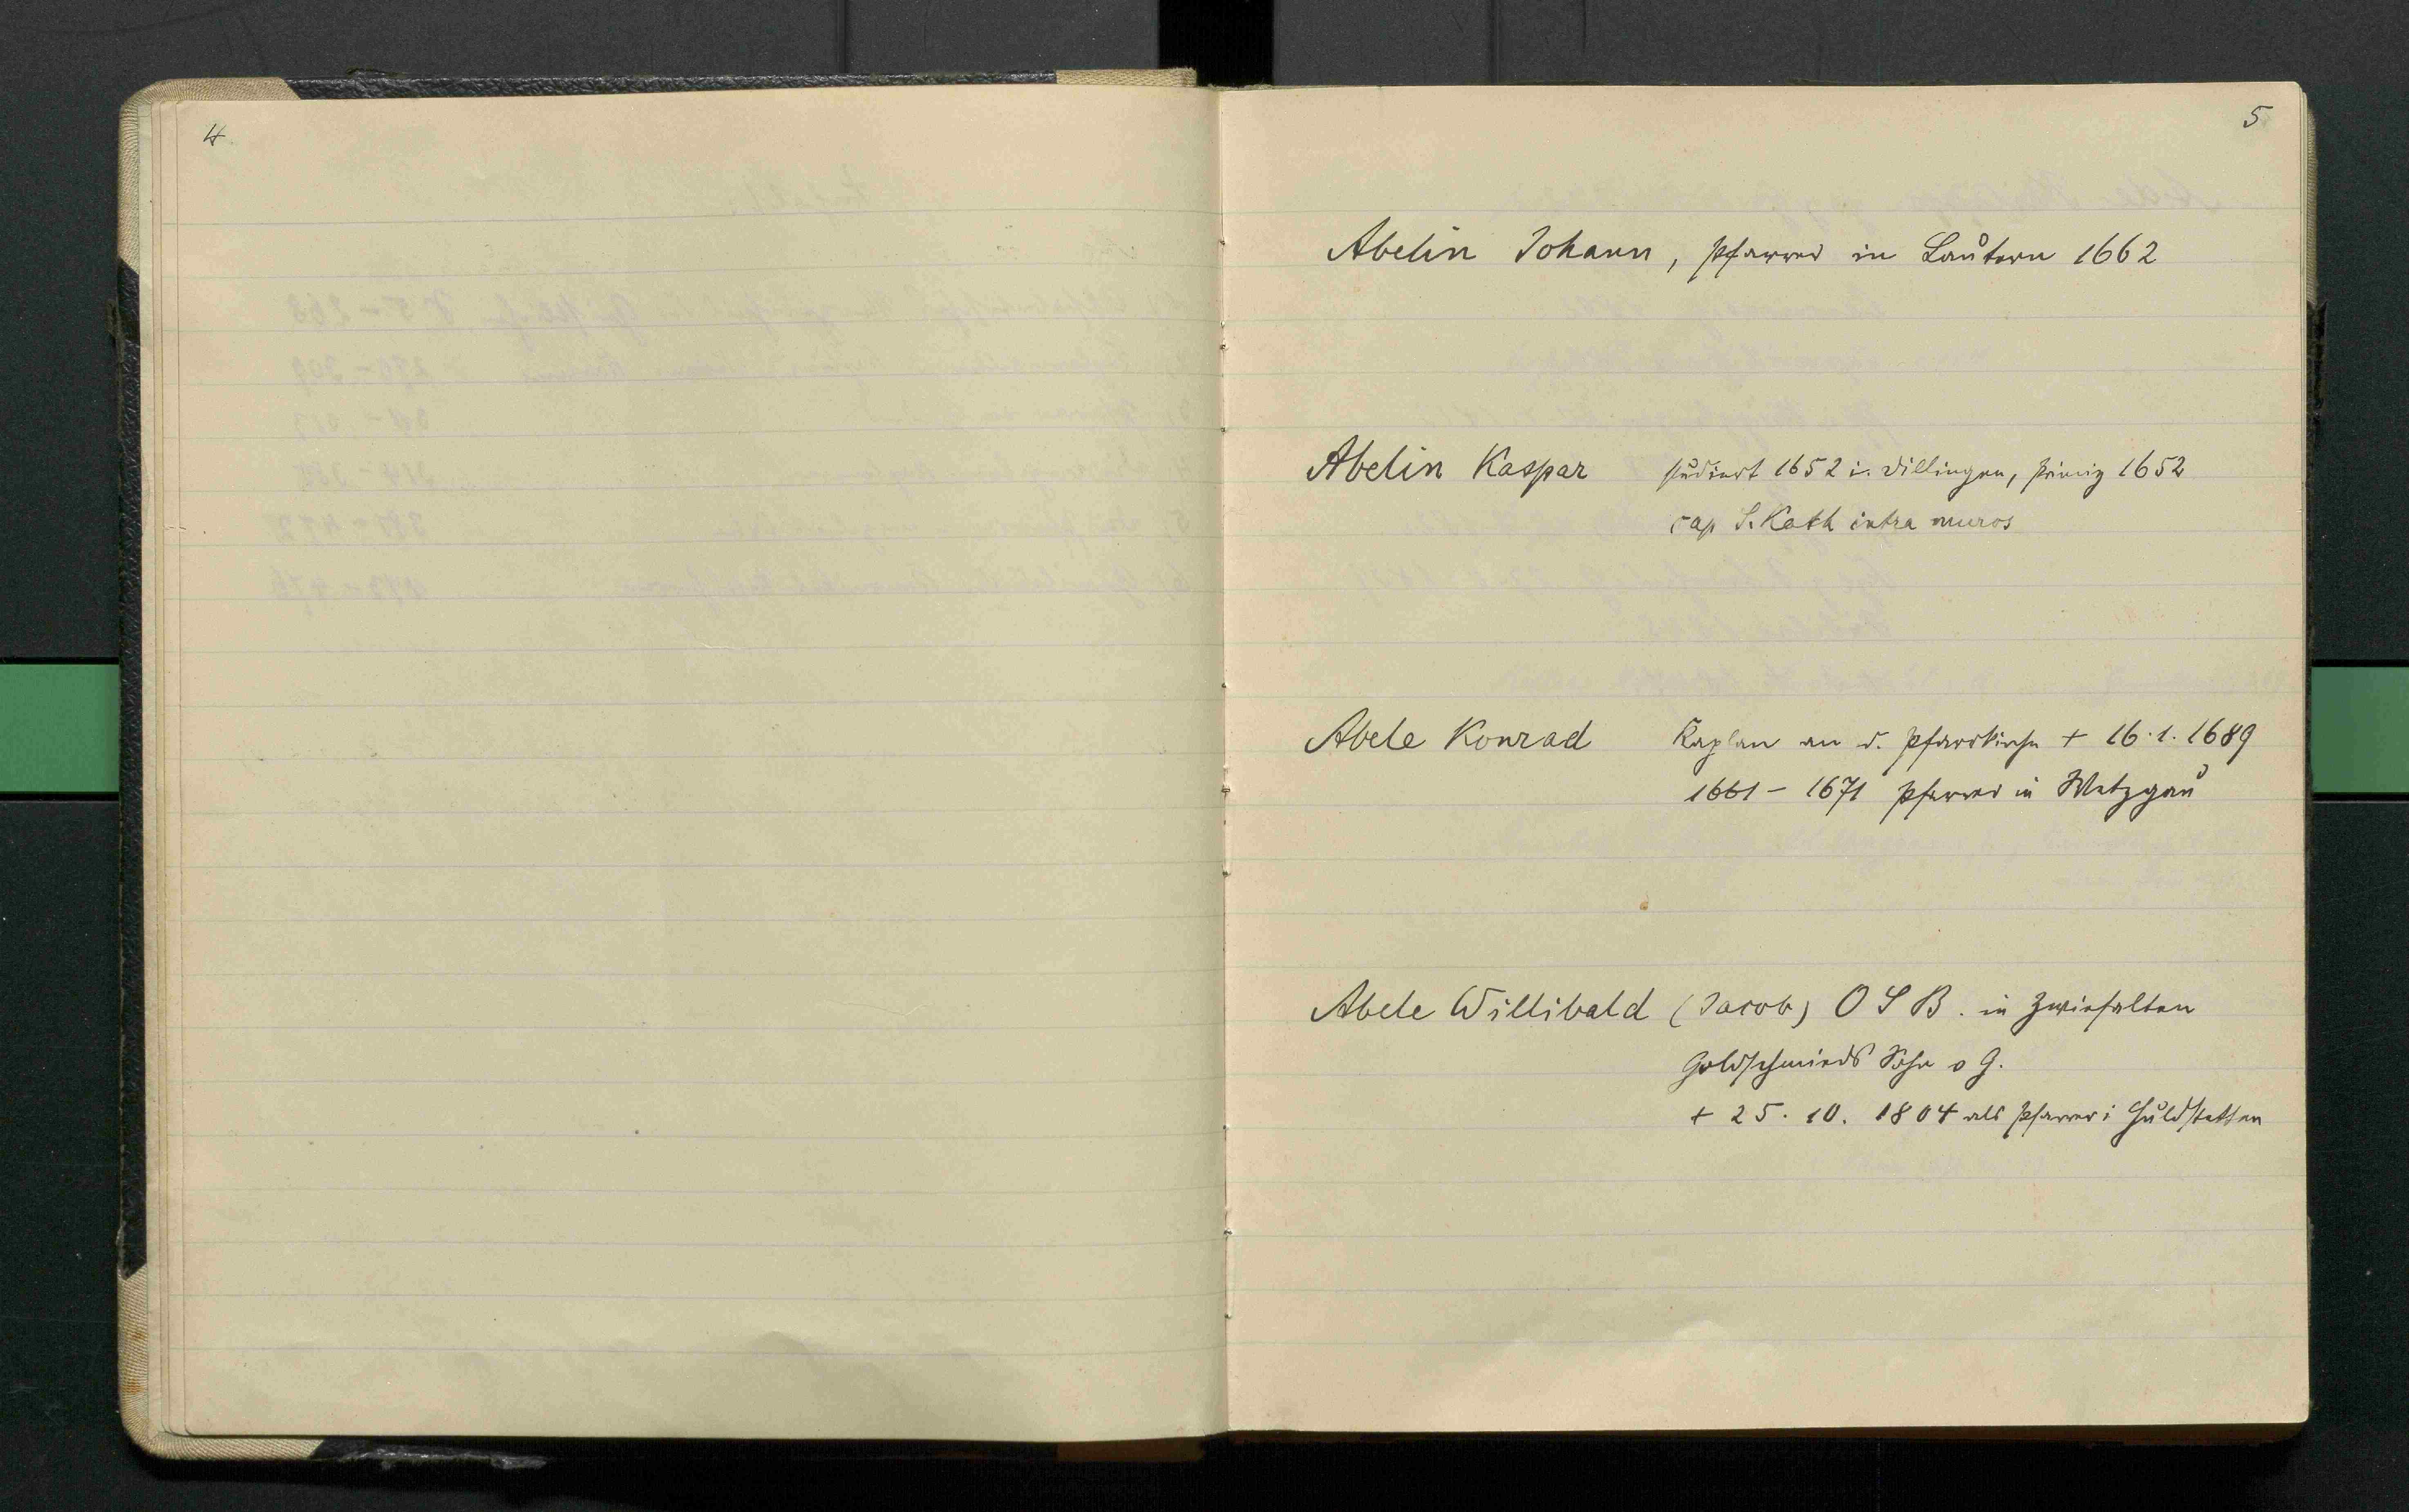 4
5
Abelin Johann, Pfarrer in Lautern 1662
Abelin Kaspar studiert 1652 i. Dillingen, Primiz 1652
cap S. Kath intra muros
Abele Konrad Kaplan an d. Pfarrkirche + 16.1.1689
1661 - 1671 Pfarrer in Wetzgau
Abele Willibald (Jacob) O S B. in Zwiefalten
Goldschmieds Sohn v G.
+ 25. 10. 1804 als Pfarrer i Huldstetten